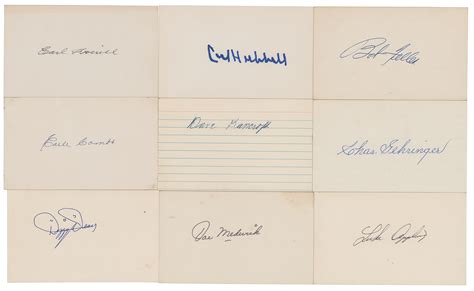 Earl Averill
Carl Hubbell
Bob Feller
Earle Combs
Dave Bancroft
Chas Gehringer
Dizzy Dean
Joe Medwick
Luke Appling